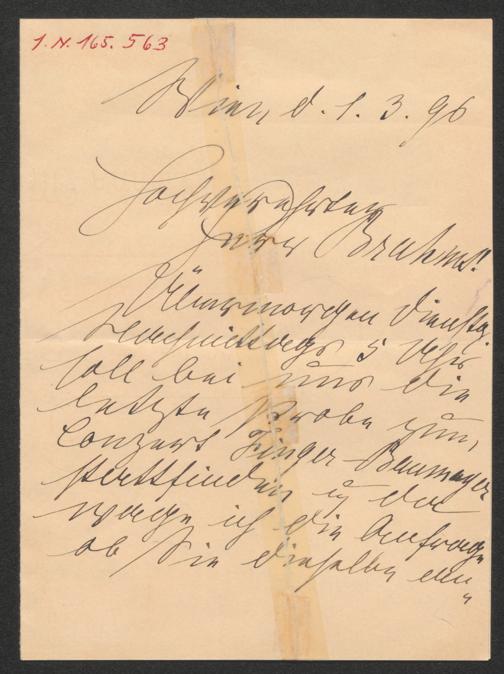 I. N. 165.563
Wien d. 1. 3. 96
Hochverehrter
Herr Brahms!
Übermorgen Dienstag
Nachmittags 5 Uhr
soll bei uns die
letzte Probe zum
Conzert Finger-Baumayer
stattfinden u da
wage ich die Anfrage
ob Sie dieselbe